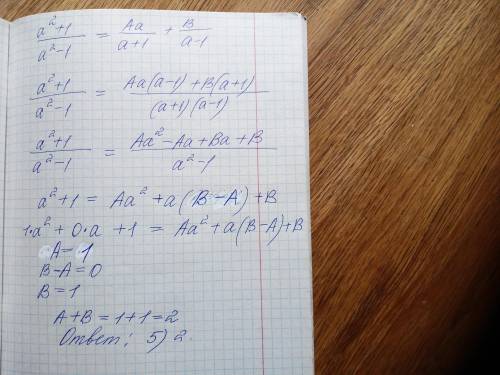 (a²+1)/(a²-1) = Aa/(a+1) + B/(a-1)
(a²+1)/(a²-1) = (Aa(a-1)+B(a+1))/((a+1)(a-1))
(a²+1)/(a²-1) = (Aa²-Aa+Ba+B)/(a²-1)
a²+1 = Aa²+a(B-A)+B
1·a²+0·a+1 = Aa²+a(B-A)+B
A=1
B-A=0
B=1
A+B=1+1=2
Ответ: 5) 2.